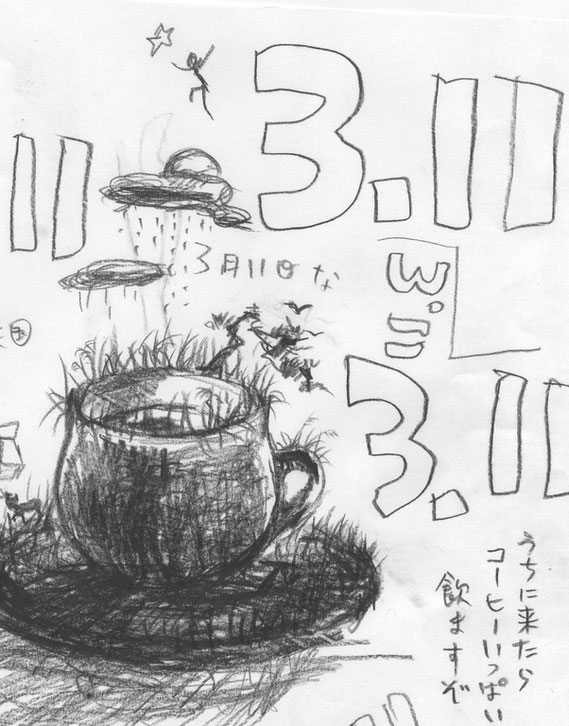 3.11
11
3月11日な
3.11
うちに来たら
コーヒーいっぱい
飲ますぞ